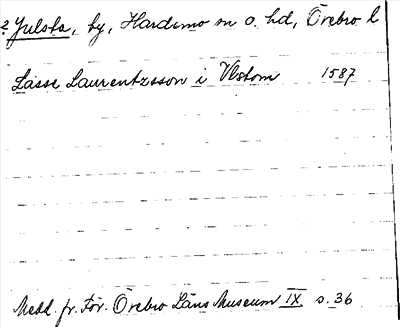 ? Julsta, by, Hardemo sn o. hd, Örebro l
Lasse Laurentzsson i Vlstom 1587
Medd. fr. För. Örebro Läns Museum IX s. 36